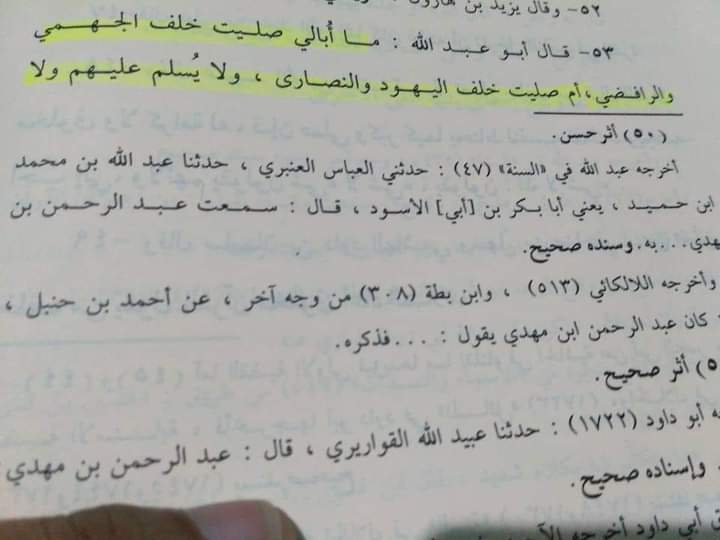 ٥٢- وقال يزيد بن هارون
٥٣- قال أبو عبد الله : ما أُبالي صليت خلف الجهمي
والرافضي، أم صليت خلف اليهود والنصارى ، ولا يُسلم عليهم ولا
(٥٠) أثر حسن.
أخرجه عبد الله في «السنة» (٤٧) : حدثني العباس العنبري ، حدثنا عبد الله بن محمد
ابن حميد ، يعني أبا بكر بن [أبي] الأسود ، قال : سمعت عبد الرحمن بن
مهدي. . . به. وسنده صحيح.
وأخرجه اللالكائي (٥١٣) ، وابن بطة (٣٠٨) من وجه آخر ، عن أحمد بن حنبل ،
: كان عبد الرحمن ابن مهدي يقول : . . . فذكره.
) أثر صحيح.
أبو داود (١٧٢٢) : حدثنا عبيد الله القواريري ، قال : عبد الرحمن بن مهدي
. وإسناده صحيح.
أبي داود أخرجه